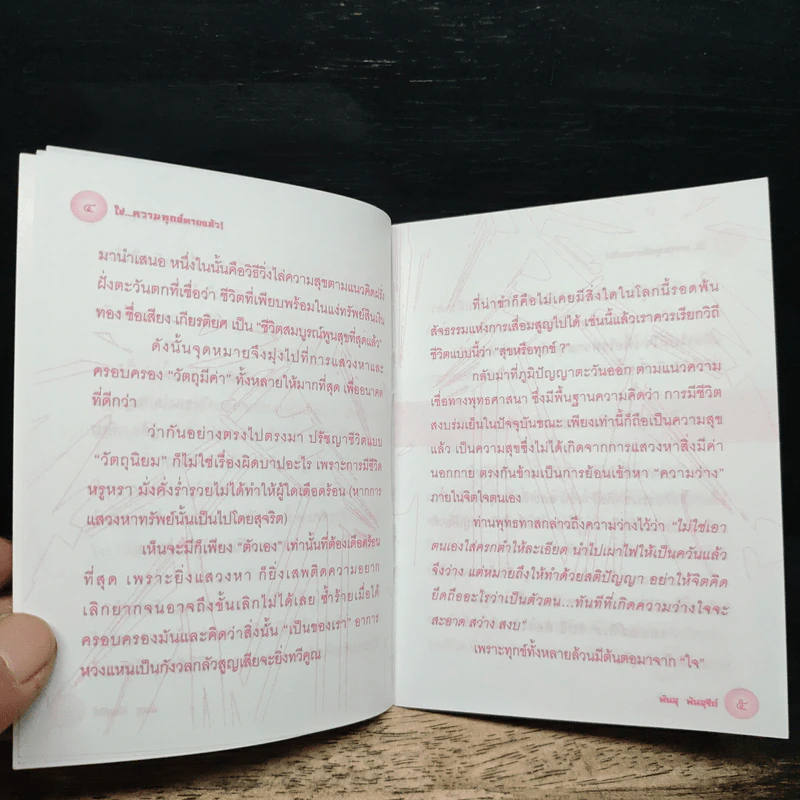 ๔
ไชโย...ความทุกข์ตายแล้ว!
มานำเสนอ หนึ่งในนั้นคือวิธีวิ่งไล่ความสุขตามแนวคิดฝรั่ง
ฝั่งตะวันตกที่เชื่อว่า ชีวิตที่เพียบพร้อมในแง่ทรัพย์สินเงิน
ทอง ชื่อเสียง เกียรติยศ เป็น “ชีวิตสมบูรณ์พูนสุขที่สุดแล้ว”
ดังนั้นจุดหมายจึงมุ่งไปที่การแสวงหาและ
ครอบครอง “วัตถุมีค่า” ทั้งหลายให้มากที่สุด เพื่ออนาคต
ที่ดีกว่า
ว่ากันอย่างตรงไปตรงมา ปรัชญาชีวิตแบบ
“วัตถุนิยม” ก็ไม่ใช่เรื่องผิดบาปอะไร เพราะการมีชีวิต
หรูหรา มั่งคั่งร่ำรวยไม่ได้ทำให้ผู้ใดเดือดร้อน (หากการ
แสวงหาทรัพย์นั้นเป็นไปโดยสุจริต)
เห็นจะมีก็เพียง “ตัวเอง” เท่านั้นที่ต้องเดือดร้อน
ที่สุด เพราะยิ่งแสวงหา ก็ยิ่งเสพติดความอยาก
เลิกยากจนอาจถึงขั้นเลิกไม่ได้เลย ซ้ำร้ายเมื่อได้
ครอบครองมันและคิดว่าสิ่งนั้น “เป็นของเรา” อาการ
หวงแหนเป็นกังวลกลัวสูญเสียจะยิ่งทวีคูณ
ที่น่าขำก็คือไม่เคยมีสิ่งใดในโลกนี้รอดพ้น
สัจธรรมแห่งการเสื่อมสูญไปได้ เช่นนี้แล้วเราควรเรียกวิถี
ชีวิตแบบนี้ว่า “สุขหรือทุกข์ ?”
กลับมาที่ภูมิปัญญาตะวันออก ตามแนวความ
เชื่อทางพุทธศาสนา ซึ่งมีพื้นฐานความคิดว่า การมีชีวิต
สงบร่มเย็นในปัจจุบันขณะ เพียงเท่านี้ก็ถือเป็นความสุข
แล้ว เป็นความสุขซึ่งไม่ได้เกิดจากการแสวงหาสิ่งมีค่า
นอกกาย ตรงกันข้ามเป็นการย้อนเข้าหา “ความว่าง”
ภายในจิตใจตนเอง
ท่านพุทธทาสกล่าวถึงความว่างไว้ว่า “ไม่ใช่เอา
ตนเองใส่ครกตำให้ละเอียด นำไปเผาไฟให้เป็นควันแล้ว
จึงว่าง แต่หมายถึงให้ทำด้วยสติปัญญา อย่าให้จิตคิด
ยึดถืออะไรว่าเป็นตัวตน...ทันทีที่เกิดความว่างใจจะ
สะอาด สว่าง สงบ”
เพราะทุกข์ทั้งหลายล้วนมีต้นตอมาจาก “ใจ”
พันนุ พันนุรีย์
๕